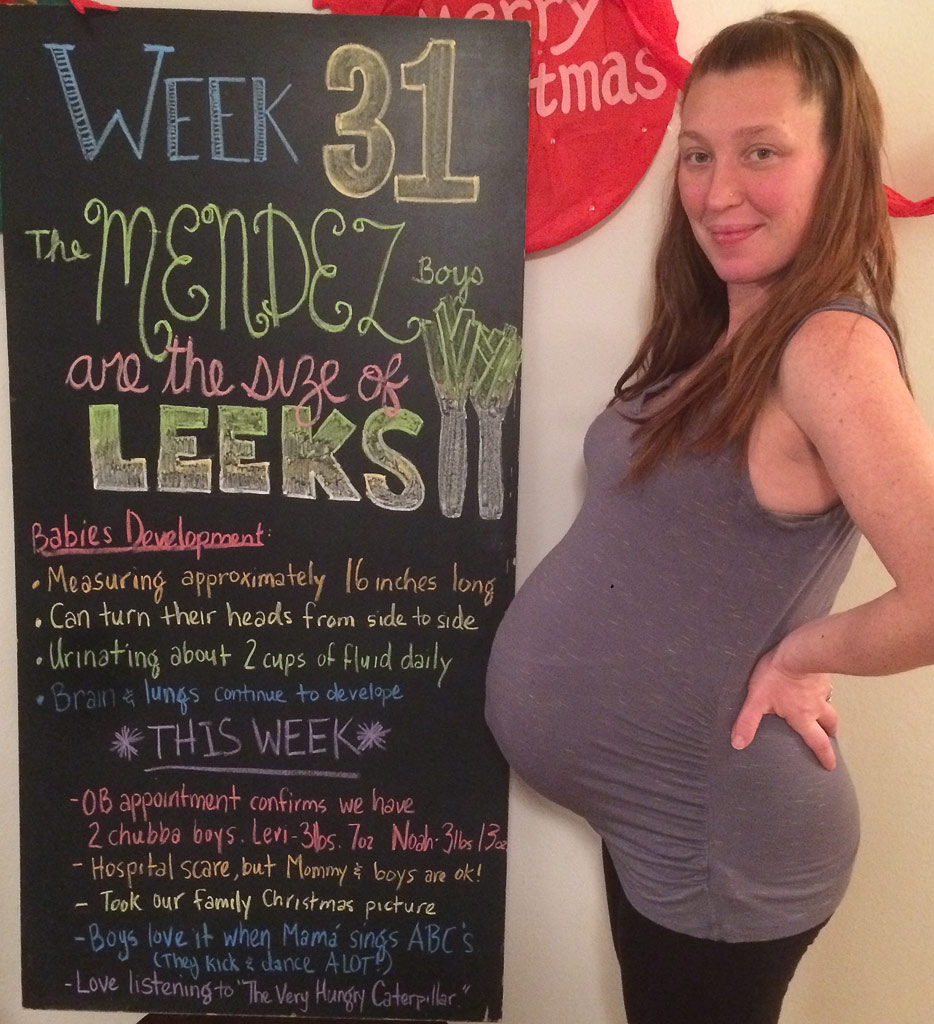 Merry
Christmas
WEEK 31
The MENDEZ Boys
are the size of
LEEKS
Babies Development:
• Measuring approximately 16 inches long
• Can turn their heads from side to side
• Urinating about 2 cups of fluid daily
• Brain & lungs continue to develope
*THIS WEEK*
- OB appointment confirms we have
2 chubba boys. Levi-3lbs. 7oz Noah-3lbs 13oz
- Hospital scare, but Mommy & boys are ok!
- Took our family Christmas picture
- Boys love it when Mamá sings ABC's
(They kick & dance ALOT!)
- Love listening to "The Very Hungry Caterpillar."